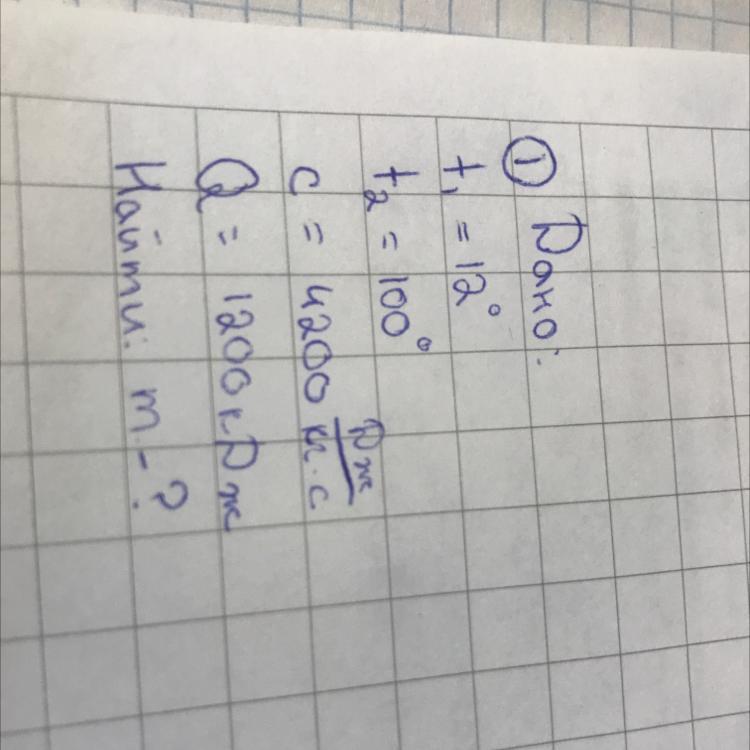 ① Дано:
t₁ = 12°
t₂ = 100°
c = 4200 Дж/кг·с
Q = 1200 кДж
Найти: m - ?